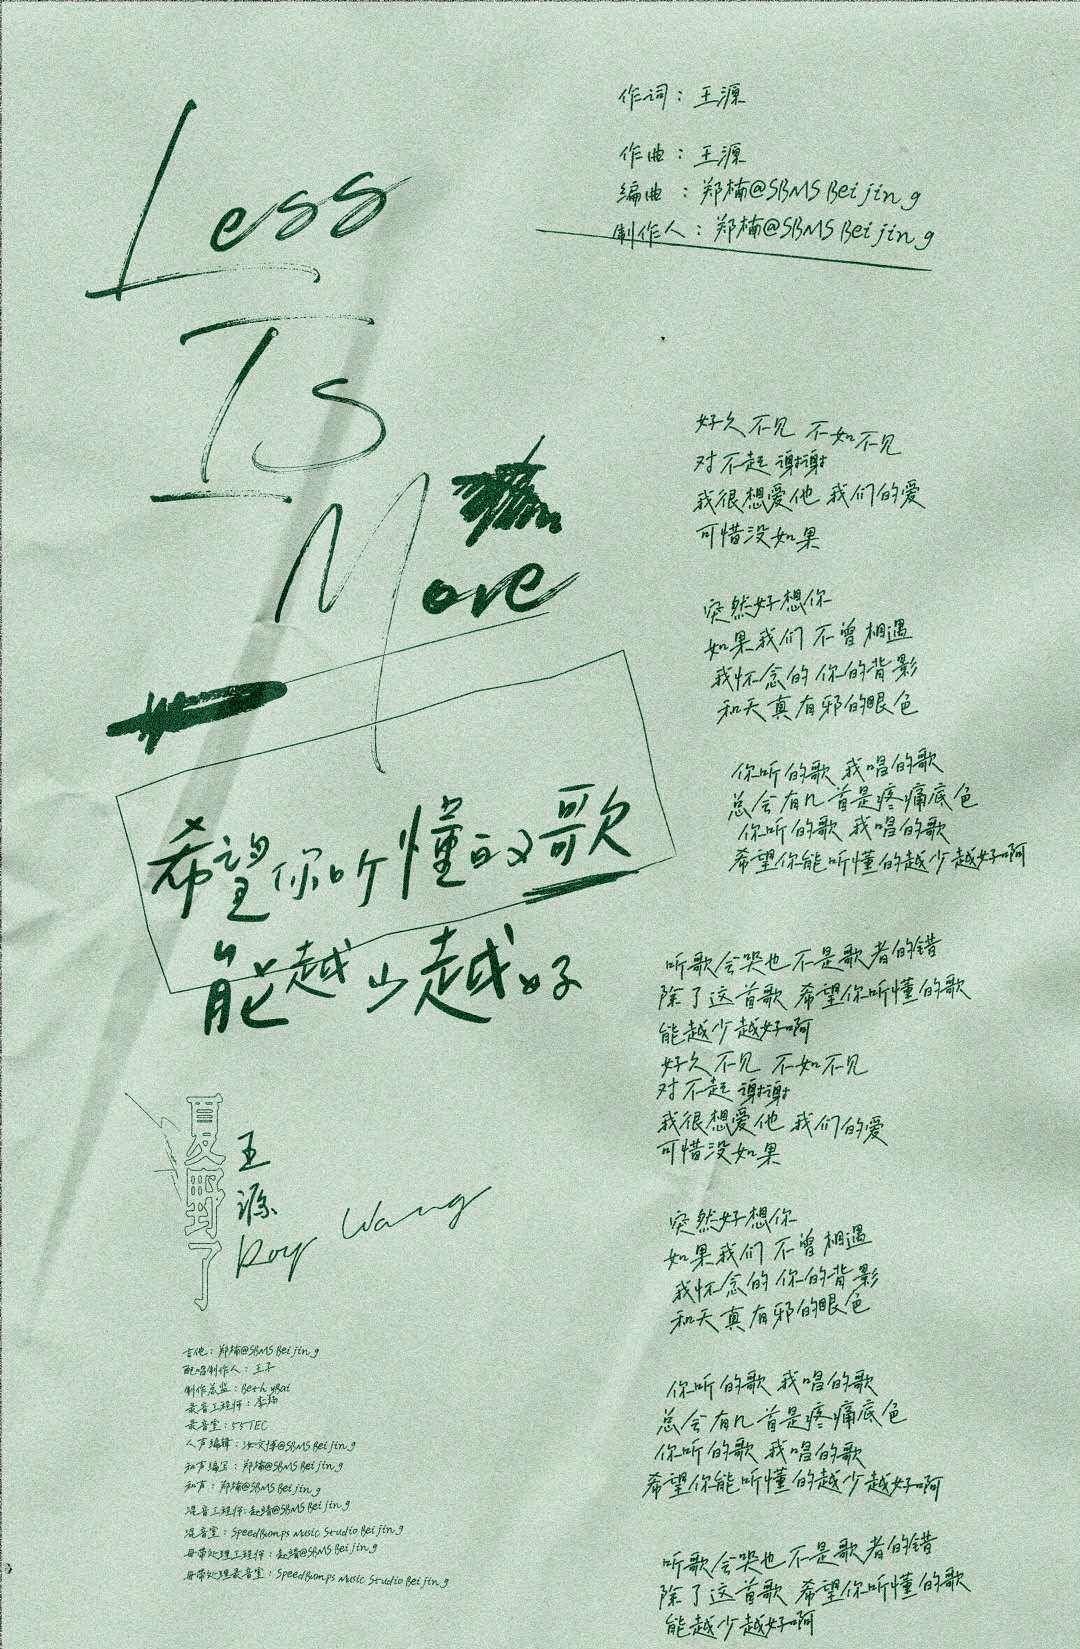 Less
Is
More
希望你听懂的歌
能越少越好
夏野了
王源
Roy Wang
吉他：郑楠@SBMS Beijing
配唱制作人：王子
制作总监：Beth yBai
录音工程师：李杨
录音室：55TEC
人声编辑：汝文博@SBMS Beijing
和声编写：郑楠@SBMS Beijing
和声：郑楠@SBMS Beijing
混音工程师：赵靖@SBMS Beijing
混音室：SpeedBumps Music Studio Beijing
母带处理工程师：赵靖@SBMS Beijing
母带处理录音室：SpeedBumps Music Studio Beijing
作词：王源
作曲：王源
编曲：郑楠@SBMS Beijing
制作人：郑楠@SBMS Beijing
好久不见 不如不见
对不起 谢谢
我很想爱他 我们的爱
可惜没如果
突然好想你
如果我们不曾相遇
我怀念的 你的背影
和天真有邪的眼色
你听的歌 我唱的歌
总会有几首是疼痛底色
你听的歌 我唱的歌
希望你能听懂的越少越好啊
听歌会哭也不是歌者的错
除了这首歌 希望你听懂的歌
能越少越好啊
好久不见 不如不见
对不起 谢谢
我很想爱他 我们的爱
可惜没如果
突然好想你
如果我们不曾相遇
我怀念的 你的背影
和天真有邪的眼色
你听的歌 我唱的歌
总会有几首是疼痛底色
你听的歌 我唱的歌
希望你能听懂的越少越好啊
听歌会哭也不是歌者的错
除了这首歌 希望你听懂的歌
能越少越好啊